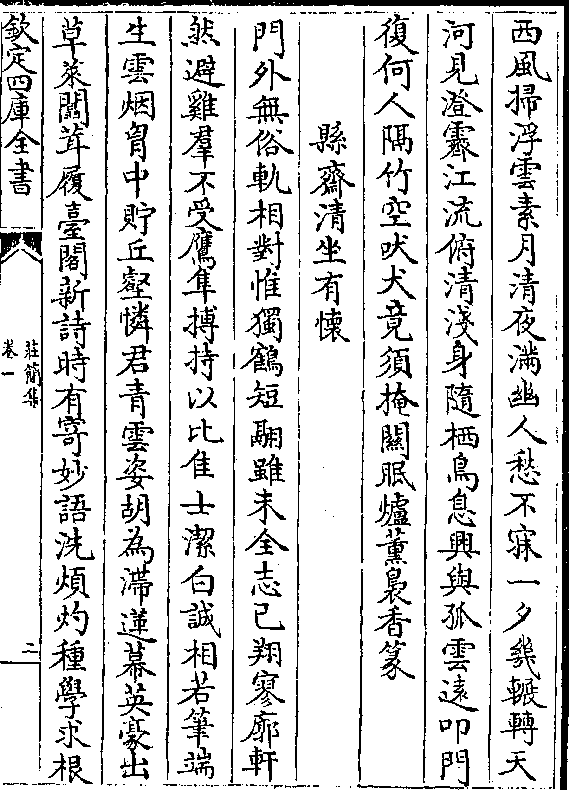 西風掃浮雲素月清夜滿幽人愁不寐一夕幾輾轉天
河見澄霽江流俯清淺身隨栖鳥息興與孤雲遠叩門
復何人隔竹空吠犬竟須掩關眠爐薰裊香篆
縣齋清坐有懷
門外無俗軌相對惟獨鶴短翮雖未全志已翔寥廓軒
然避雞羣不受鷹隼搏持以比佳士潔白誠相若筆端
生雲烟胷中貯丘壑憐君青雲姿胡為滯蓮幕英豪出
草萊闒茸履臺閣新詩時有寄妙語洗煩灼種學求根
欽定四庫全書
莊簡集
卷一
二